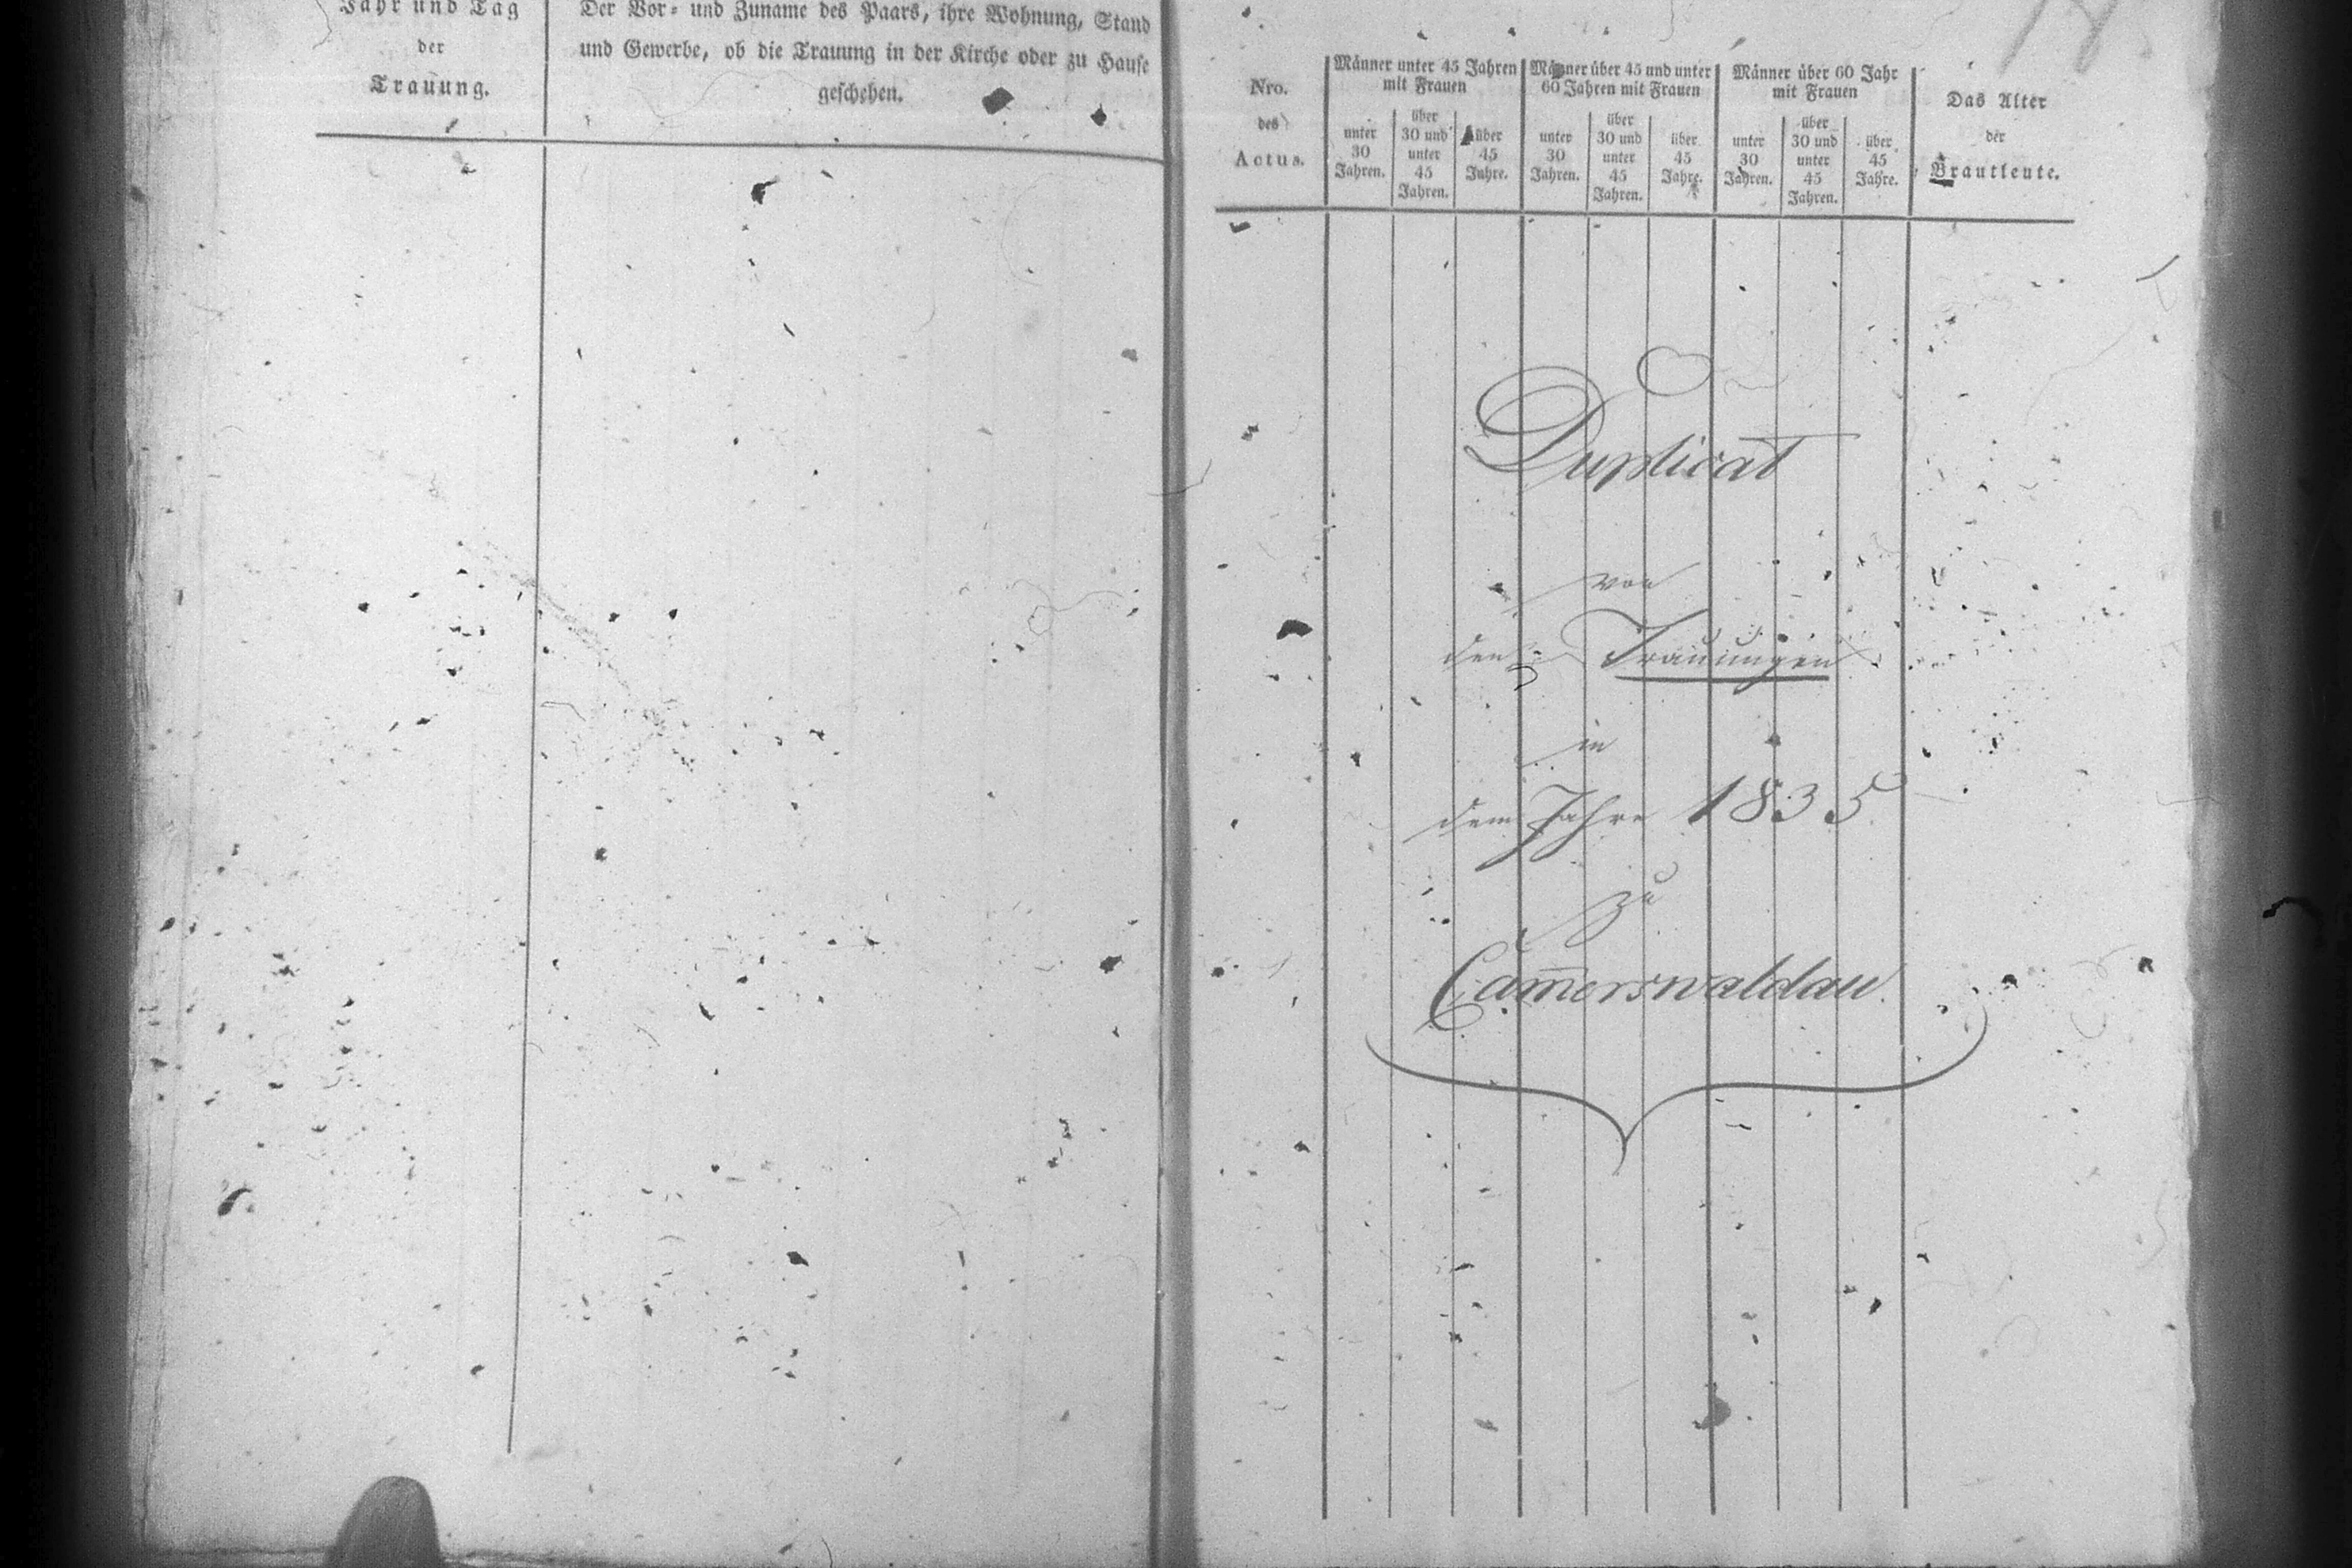 Jahr und Tag
der
Trauung.
Der Vor- und Zuname des Paars, ihre Wohnung, Stand
und Gewerbe, ob die Trauung in der Kirche oder zu Hause
geschehen.
Nro.
des
Actus.
Männer unter 45 Jahren
mit Frauen
unter
30
Jahren.
über
30 und
unter
45
Jahren.
über
45
Jahre.
Männer über 45 und unter
60 Jahren mit Frauen
unter
30
Jahren.
über
30 und
unter
45
Jahren.
über
45
Jahre.
Männer über 60 Jahr
mit Frauen
unter
30
Jahren.
über
30 und
unter
45
Jahren.
über
45
Jahre.
Das Alter
der
Brautleute.
Duplicat
von
den Trauungen
in
dem Jahre 1835
zu
Cam̄erswaldau.